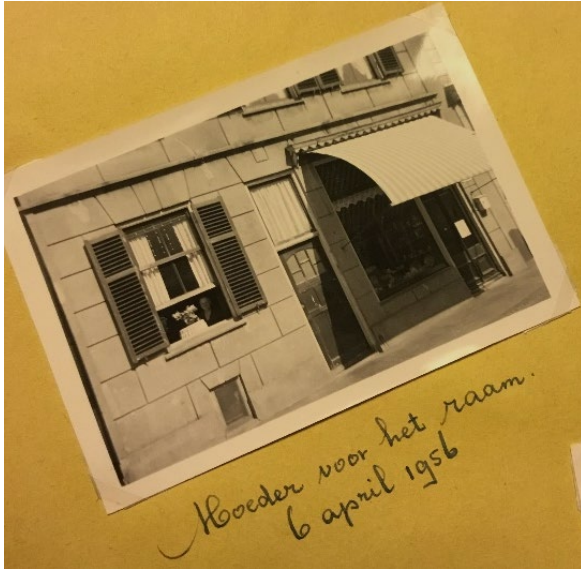 Moeder voor het raam.
6 april 1956